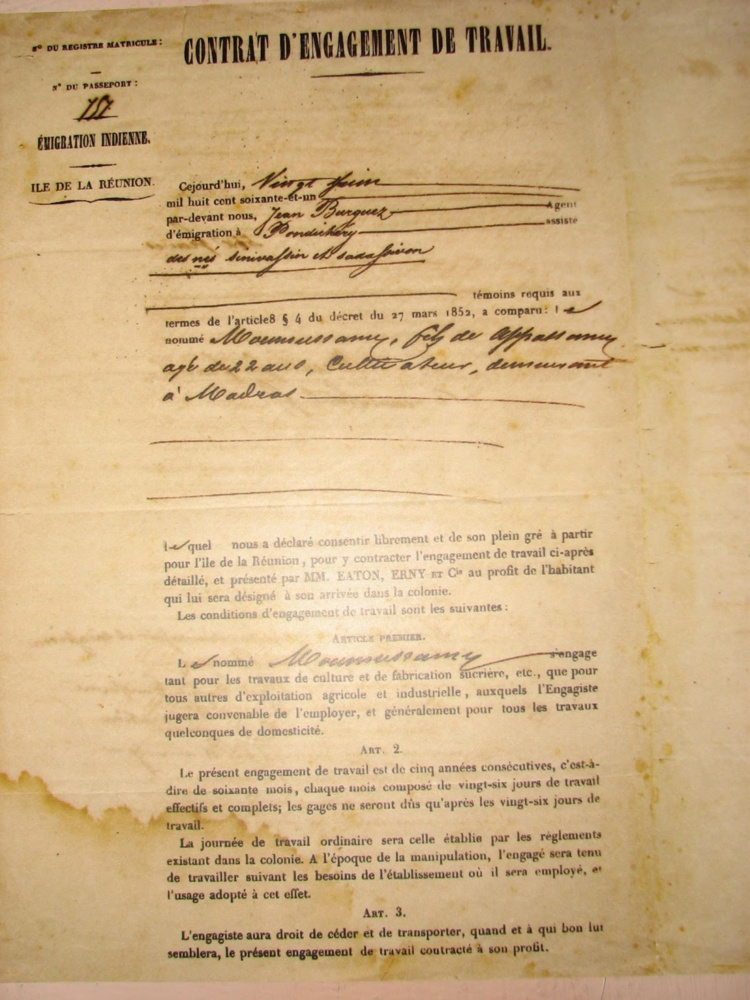 Nº DU REGISTRE MATRICULE :
CONTRAT D'ENGAGEMENT DE TRAVAIL.
Nº DU PASSEPORT :
757
ÉMIGRATION INDIENNE.
ILE DE LA RÉUNION.
Cejourd'hui, Vingt Juin
mil huit cent soixante-et-un
par-devant nous, Jean Burguez Agent
d'émigration à Pondichéry assisté
des nés sinivassin et sadassivon
témoins requis aux
termes de l'article8 § 4 du décret du 27 mars 1852, a comparu : le
nommé Mounoussamy, fils de Appassamy
agé de 22 ans, Cultivateur, demeurant
à Madras
lequel nous a déclaré consentir librement et de son plein gré à partir
pour l'île de la Réunion, pour y contracter l'engagement de travail ci-après
détaillé, et présenté par MM. EATON, ERNY ET Cie au profit de l'habitant
qui lui sera désigné à son arrivée dans la colonie.
Les conditions d'engagement de travail sont les suivantes :
ARTICLE PREMIER.
Le nommé Mounoussamy s'engage
tant pour les travaux de culture et de fabrication sucrière, etc., que pour
tous autres d'exploitation agricole et industrielle, auxquels l'Engagiste
jugera convenable de l'employer, et généralement pour tous les travaux
quelconques de domesticité.
ART. 2.
Le présent engagement de travail est de cinq années consécutives, c'est-à-
dire de soixante mois, chaque mois composé de vingt-six jours de travail
effectifs et complets; les gages ne seront dûs qu'après les vingt-six jours de
travail.
La journée de travail ordinaire sera celle établie par les règlements
existant dans la colonie. A l'époque de la manipulation, l'engagé sera tenu
de travailler suivant les besoins de l'établissement où il sera employé, et
l'usage adopté à cet effet.
ART. 3.
L'engagiste aura droit de céder et de transporter, quand et à qui bon lui
semblera, le présent engagement de travail contracté à son profit.